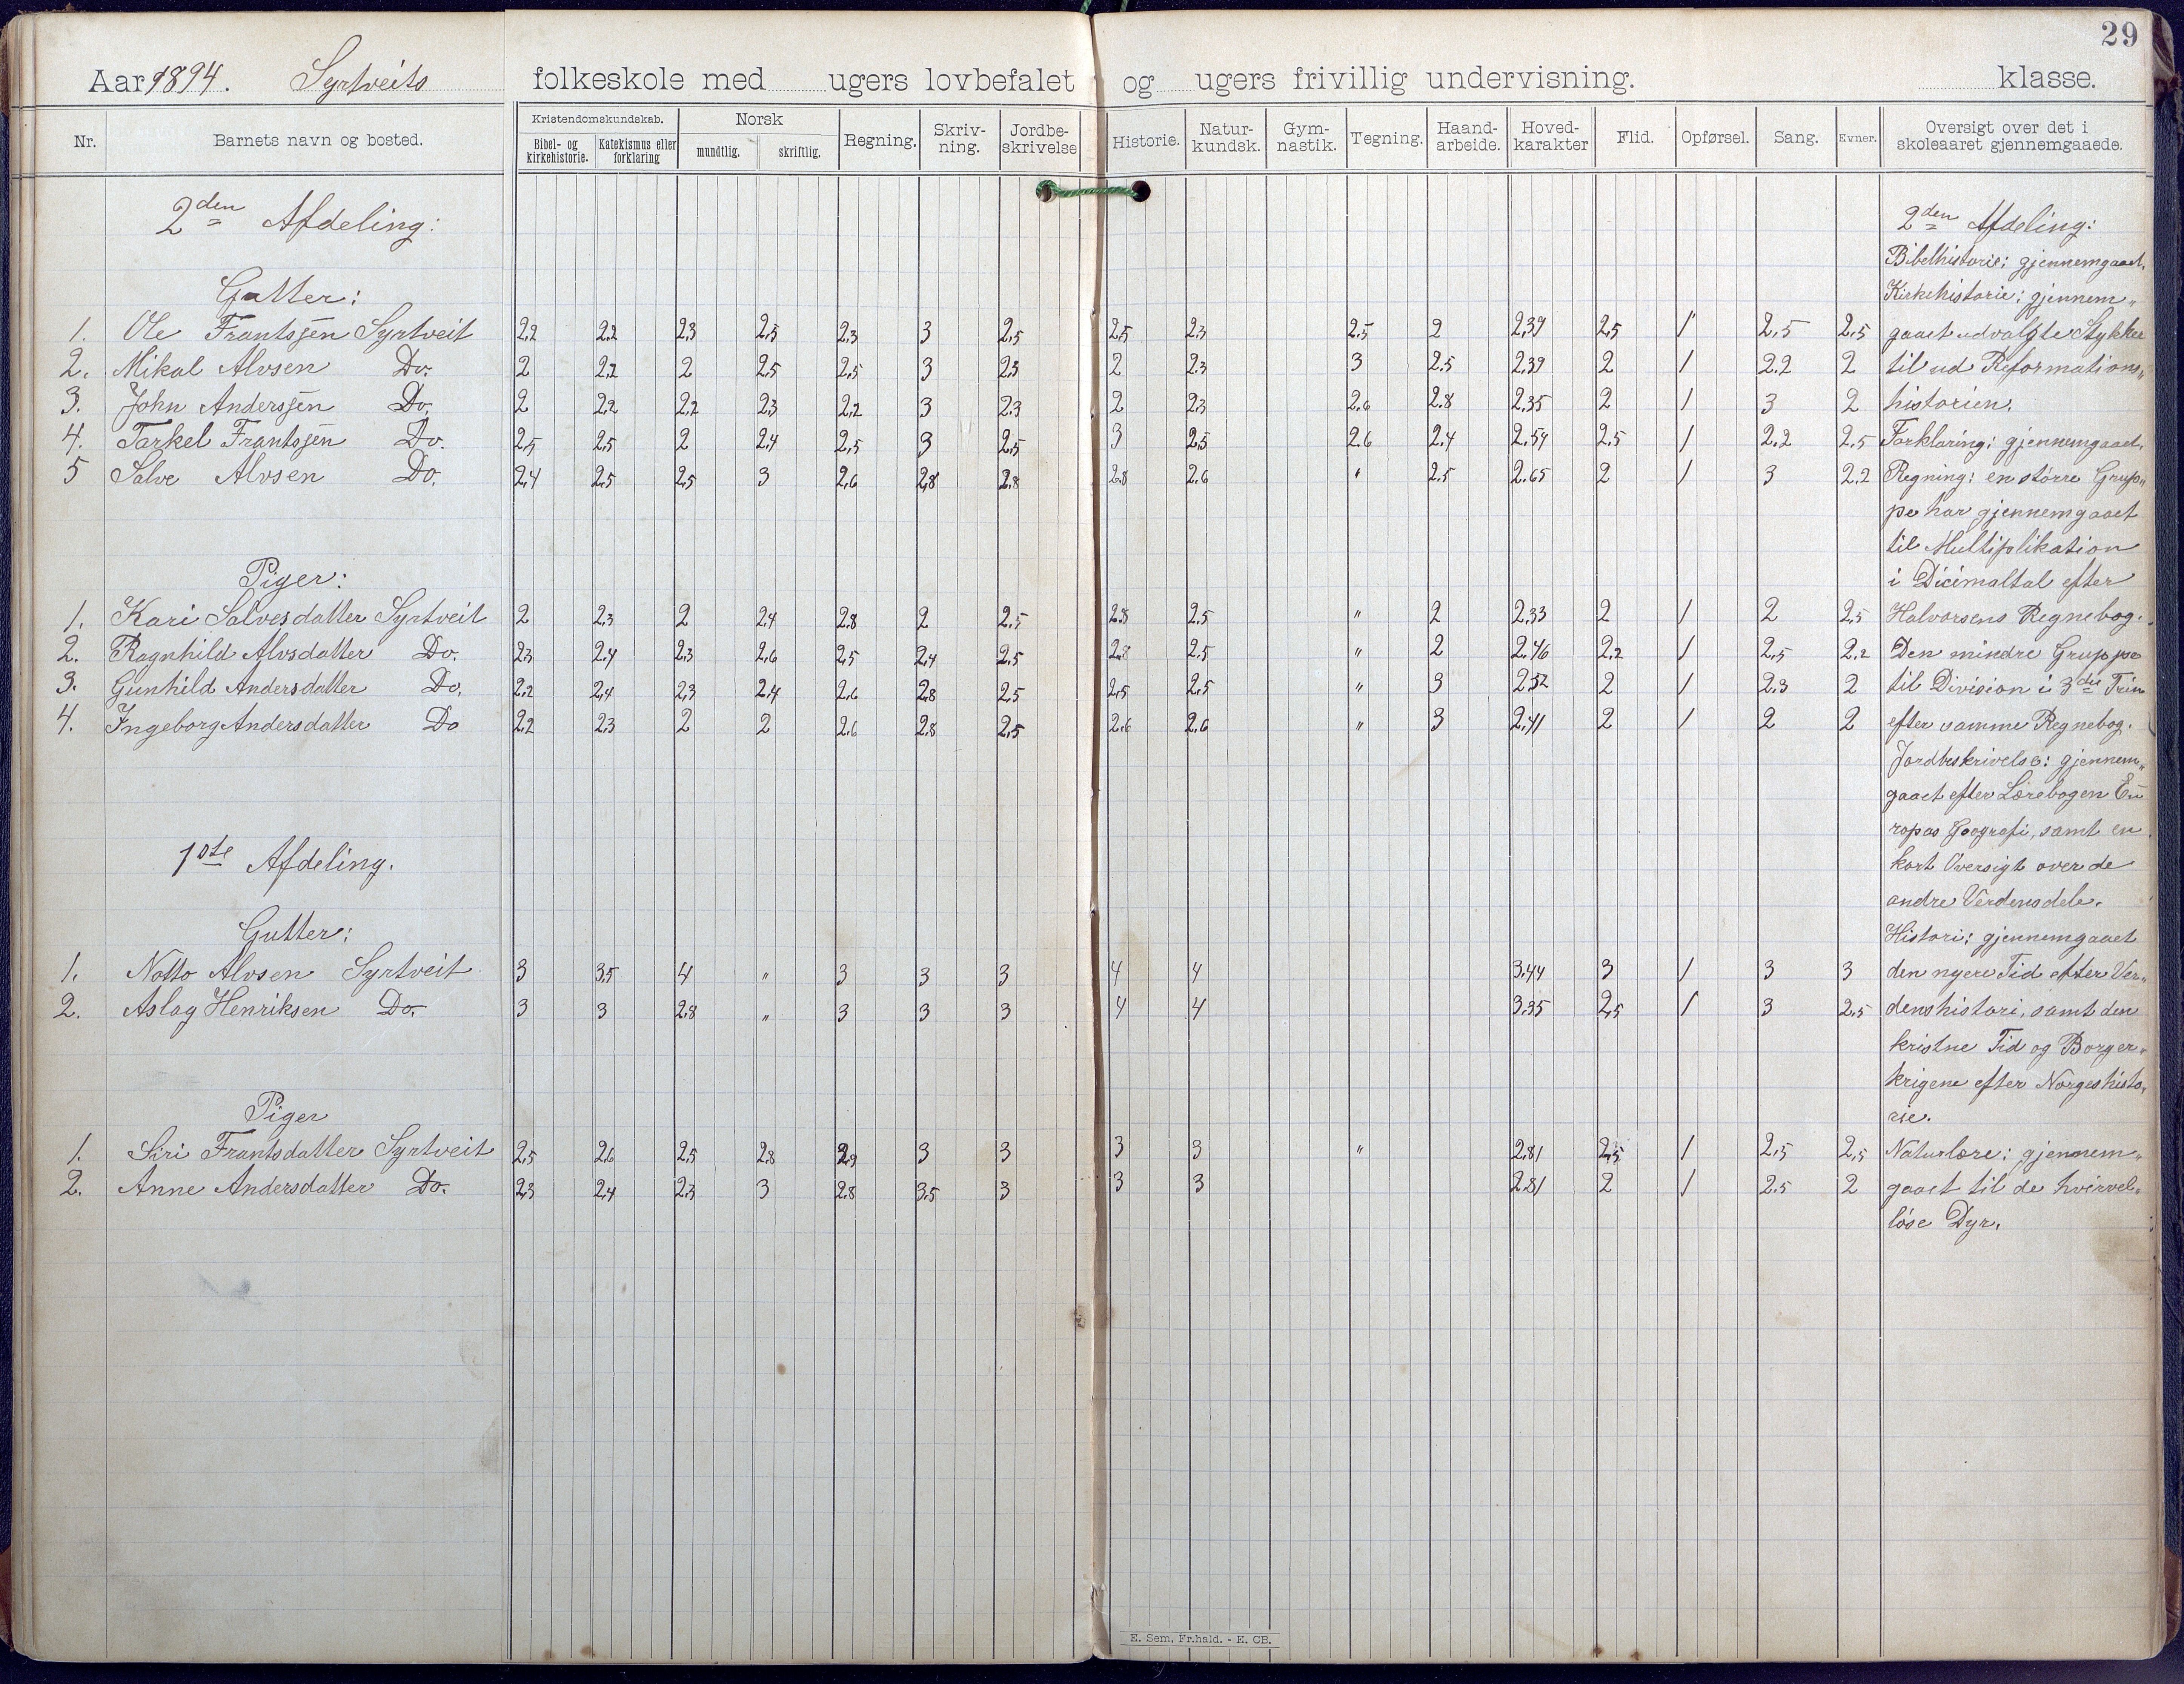 29
Aar 1894. Syrtveits folkeskole med ugers lovbefalet og ugers frivillig undervisning. klasse.
Nr. Barnets navn og bosted. Kristendomskundskab. Bibel- og kirkehistorie. Katekismus eller forklaring Norsk mundtlig. skriftlig. Regning. Skriv-ning. Jordbe-skrivelse Historie. Natur-kundsk. Gym-nastik. Tegning. Haand-arbeide. Hoved-karakter Flid. Opførsel. Sang. Evner. Oversigt over det i skoleaaret gjennemgaaede.
2den Afdeling: 2den Afdeling:
Bibelhistorie: gjennemgaaet.
Gutter: Kirkehistorie: gjennem„
1. Ole Frantssen Syrtveit 2,2 2,2 2,3 2,5 2,3 3 2,5 2,5 2,3 2,5 2 2,39 2,5 1 2,5 2,5 gaaet udvalgte Stykker
2. Mikal Alvsen Do. 2 2,2 2 2,5 2,5 3 2,3 2 2,3 3 2,5 2,39 2 1 2.2 2 til ud Reformations„
3. John Anderssen Do. 2 2,2 2,2 2,3 2,2 3 2,3 2 2,3 2.6 2.8 2,35 2 1 3 2 historien.
4. Tarkel Frantssen Do. 2,5 2,5 2 2,4 2,5 3 2,5 3 2,5 2.6 2,4 2,54 2,5 1 2,2 2,5 Forklaring: gjennemgaaet.
5 Salve Alvsen Do. 2,4 2,5 2,5 3 2,6 2,8 2,8 2,8 2,6 " 2.5 2.65 2 1 3 2.2 Regning: en større Grup„
pe har gjennemgaaet
til Multiplikation
Piger: i Dicimaltal efter
1. Kari Salvesdatter Syrtveit 2 2,3 2 2,4 2,8 2 2,5 2,8 2,5 " 2 2,33 2 1 2 2,5 Halvorsens Regnebog.
2. Ragnhild Alvsdatter Do. 2,3 2,4 2,3 2,6 2,5 2,4 2,5 2,8 2,5 " 2 2,46 2,2 1 2,5 2,2 Den mindre Gruppe
3. Gunhild Andersdatter Do. 2,2 2,4 2,3 2,4 2,6 2,8 2,5 2,5 2,5 " 3 2,52 2 1 2.3 2 til Division i 3die Trin
4. Ingeborg Andersdatter Do 2,2 2,3 2 2 2,6 2,8 2,5 2,6 2,6 " 3 2,41 2 1 2 2 efter samme Regnebog.
Jordbeskrivelse: gjennem„
gaaet efter Lærebogen Eu
ropas Geografi, samt en
1ste Afdeling. kort Oversigt over de
andre Verdensdele.
Gutter: Histori: gjennemgaaet
1. Notto Alvsen Syrtveit 3 3,5 4 " 3 3 3 4 4 3,44 3 1 3 3 den nyere Tid efter Ver„
2. Aslag Henriksen Do. 3 3 2,8 " 3 3 3 4 4 3,35 2,5 1 3 2,5 denshistori, samt den
kristne Tid og Borger„
krigene efter Norgeshisto„
Piger rie.
1. Siri Frantsdatter Syrtveit 2,5 2,6 2,5 2,8 2,9 3 3 3 3 " 2,81 2,5 1 2,5 2,5 Naturlære: gjennem„
2. Anne Andersdatter Do. 2,3 2,4 2,3 3 2,8 3,5 3 3 3 2,81 2 1 2.5 2 gaaet til de hvirvel„
løse Dyr.
E. Sem, Fr.hald. - E. CB.